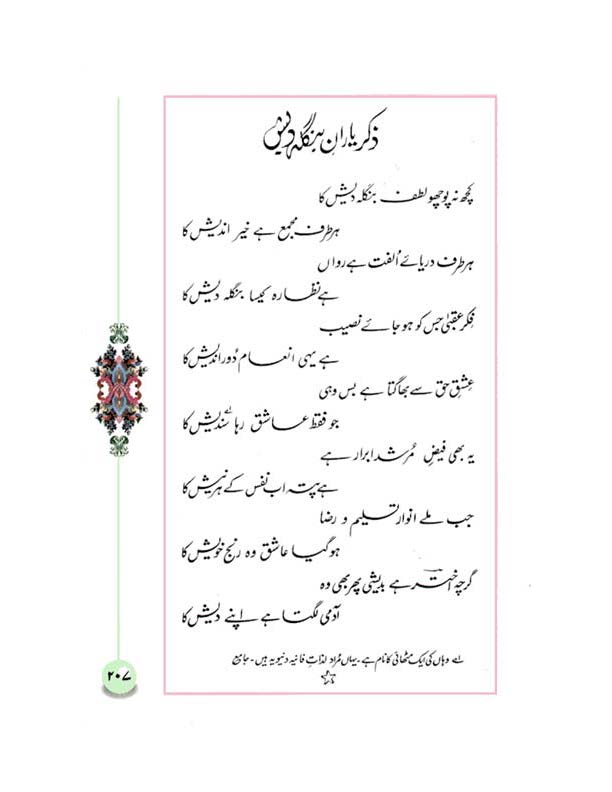 ذکر یارانِ بنگلہ دیش
کچھ نہ پوچھو لطف بنگلہ دیش کا
ہر طرف مجمع ہے خیر اندیش کا
ہر طرف دریائے اُلفت ہے رواں
ہے نظارہ کیسا بنگلہ دیش کا
فکرِ عقبیٰ جس کو ہو جائے نصیب
ہے یہی انعام دُور اندیش کا
عشقِ حق سے بھاگتا ہے بس وہی
جو فقط عاشق رہا سندیش کا
یہ بھی فیضِ مُرشد ابرار ہے
ہے پتہ اب نفس کے ہر نیش کا
جب ملے انوار تسلیم و رضا
ہو گیا عاشق وہ رنج خویش کا
گرچہ اختر ہے بدیشی پھر بھی وہ
آدمی لگتا ہے اپنے دیش کا
لے وہاں کی ایک مٹھائی کا نام ہے۔ یہاں مُراد لذاتِ فانیہ دنیویہ ہیں۔ جامع
۲۰۷